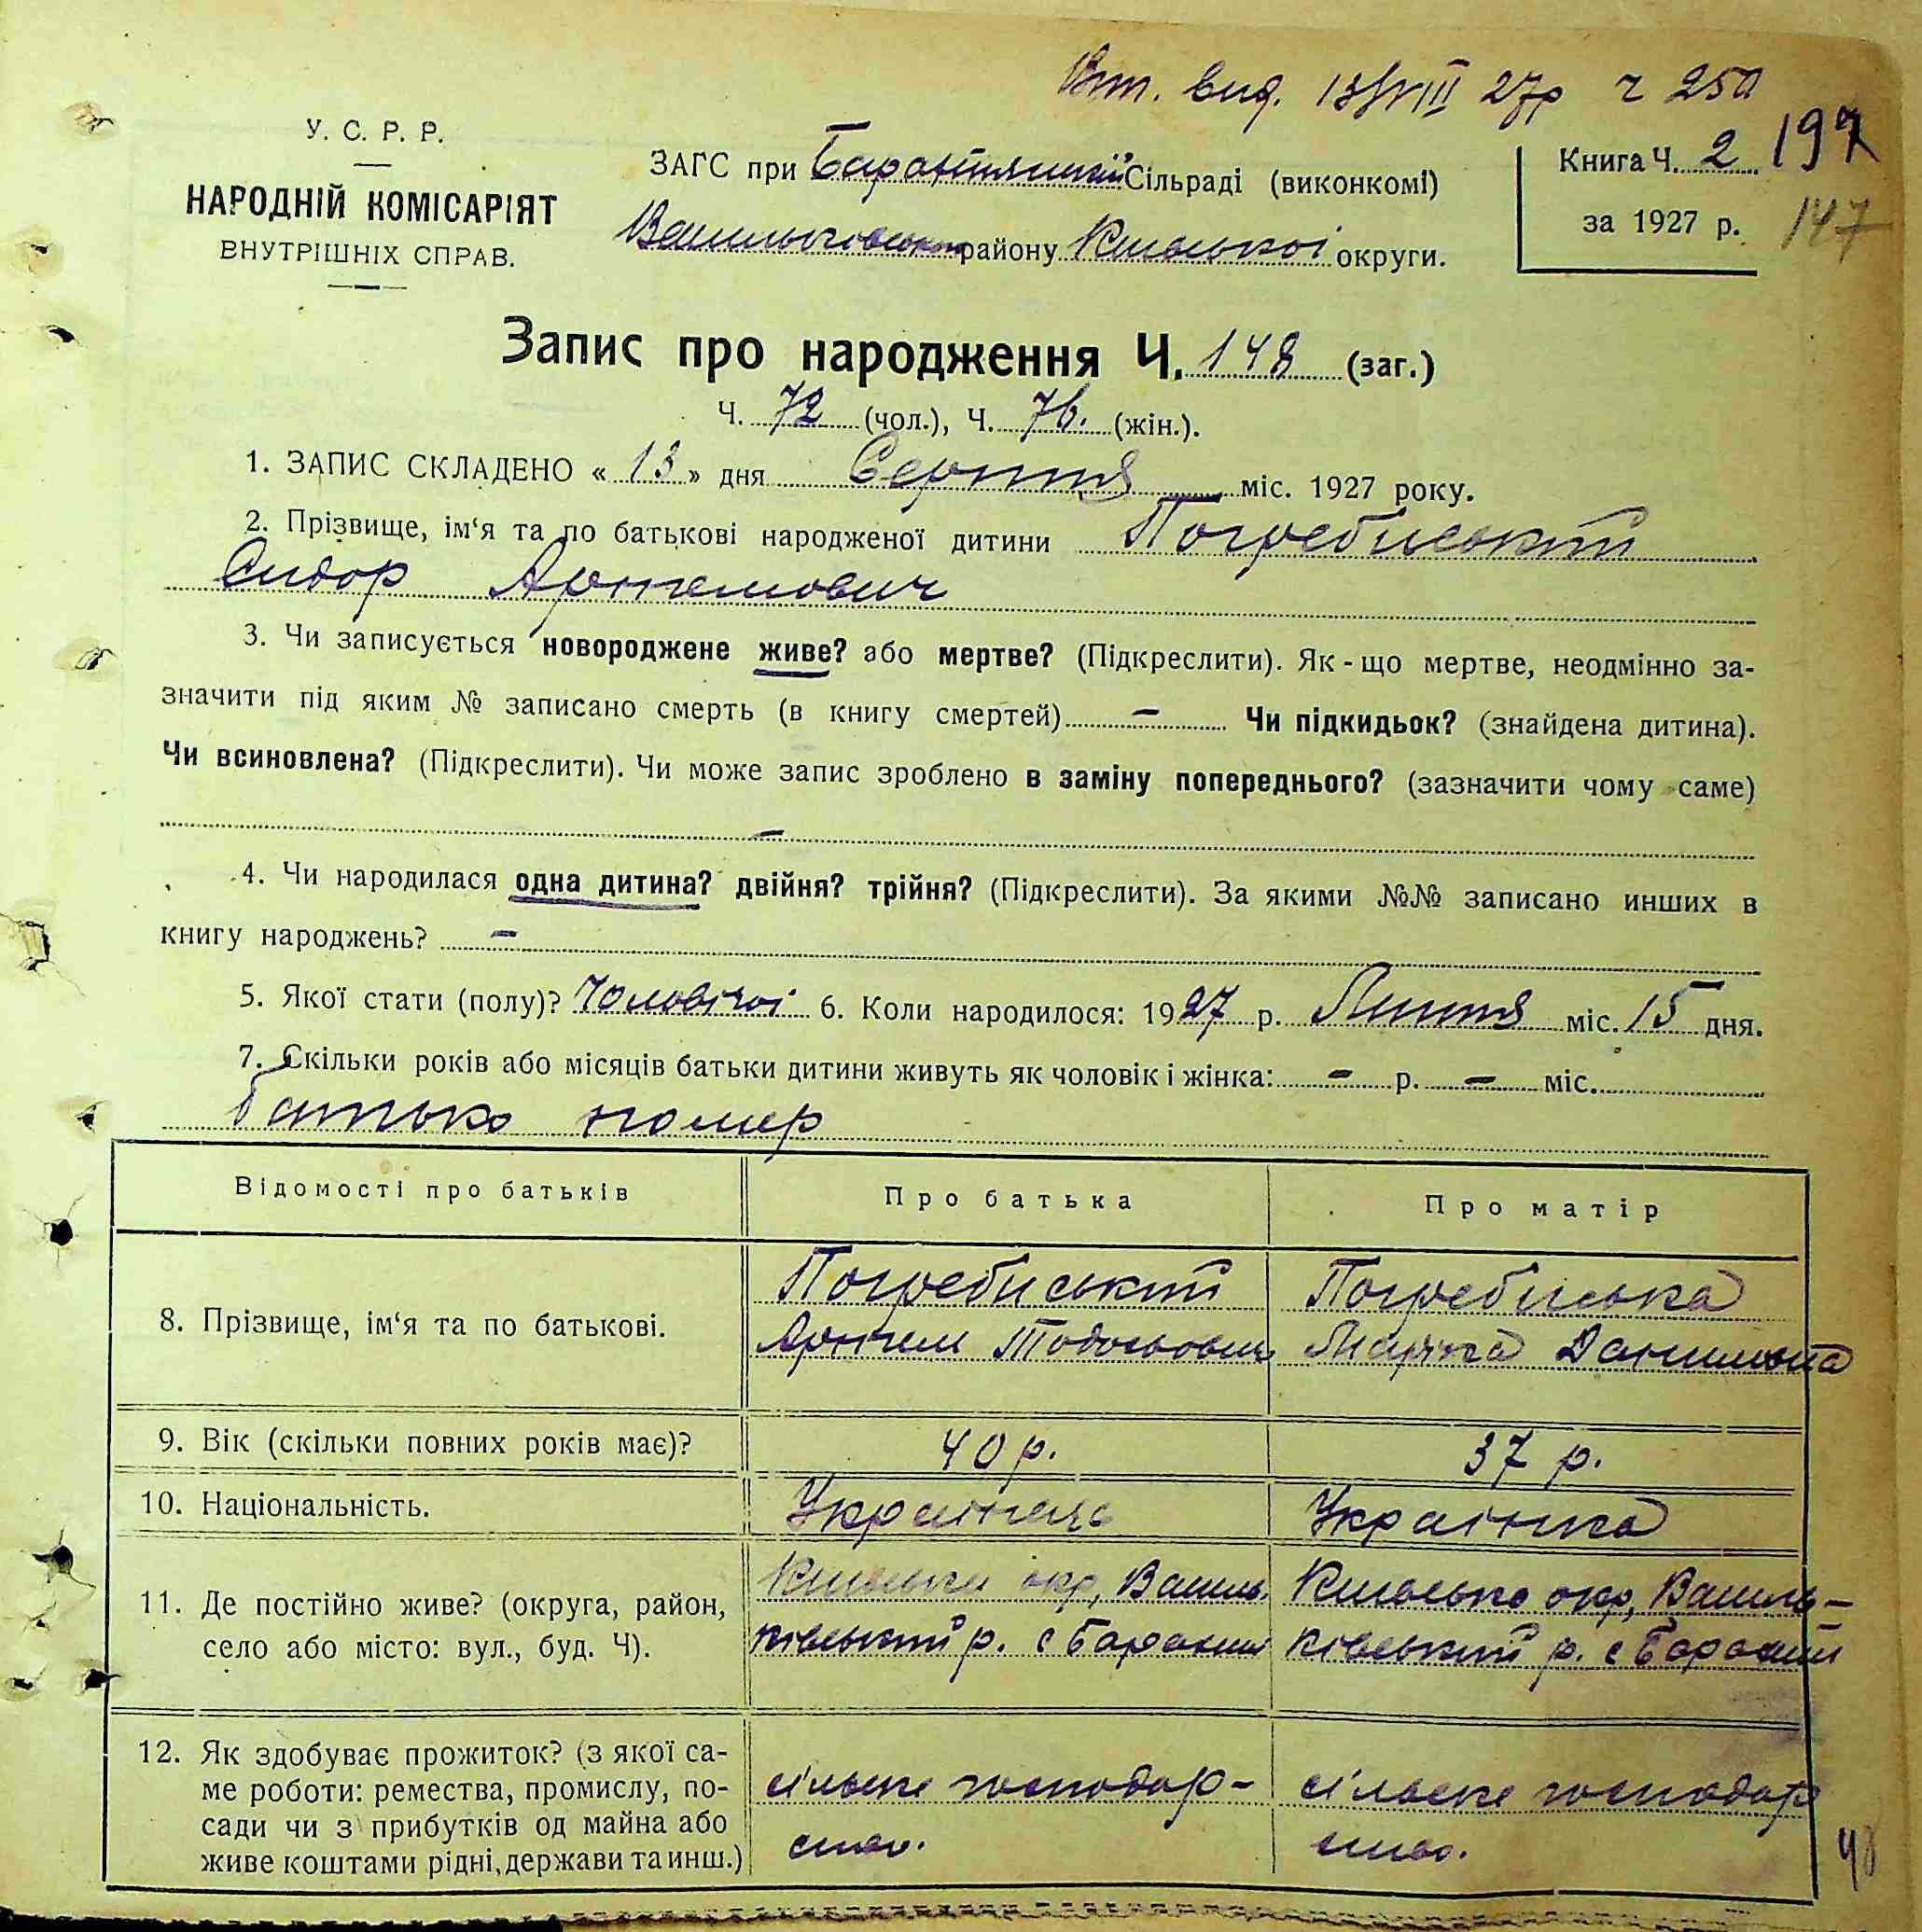 Вит. вид. 13/VIII 27р ч 250
У. С. Р. Р.
НАРОДНІЙ КОМІСАРІЯТ
ВНУТРІШНІХ СПРАВ.
ЗАГС при Барахтянській Сільраді (виконкомі)
Васильківського району Київської округи.
Книга Ч. 2 197
за 1927 р. 147
Запис про народження Ч. 148 (заг.)
Ч. 72 (чол.), Ч. 76. (жін.).
1. ЗАПИС СКЛАДЕНО « 13 » дня Серпня міс. 1927 року.
2. Прізвище, ім‘я та по батькові народженої дитини Погребиський
Сидор Артемович
3. Чи записується новороджене живе? або мертве? (Підкреслити). Як-що мертве, неодмінно за-
значити під яким № записано смерть (в книгу смертей) – Чи підкидьок? (знайдена дитина).
Чи всиновлена? (Підкреслити). Чи може запис зроблено в заміну попереднього? (зазначити чому саме)
–
4. Чи народилася одна дитина? двійня? трійня? (Підкреслити). За якими №№ записано инших в
книгу народжень? –
5. Якої стати (полу)? Чоловічої 6. Коли народилося: 1927 р. Липня міс. 15 дня.
7. Скільки років або місяців батьки дитини живуть як чоловік і жінка: – р. – міс.
батько помер
Відомості про батьків Про батька Про матір
8. Прізвище, ім‘я та по батькові.
Погребиський
Артем Тодосьович
Погребиська
Данилівна
9. Вік (скільки повних років має)? 40 р. 37 р.
10. Національність. Українець Українка
11. Де постійно живе? (округа, район,
село або місто: вул., буд. Ч).
Київська окр, Василь-
ківський р. с Барахти
Київська окр, Василь-
ківський р. с Барахти
12. Як здобуває прожиток? (з якої са-
ме роботи: ремества, промислу, по-
сади чи з прибутків од майна або
живе коштами рідні, держави та инш.)
сільське господар-
ство.
сільське господар
ство.
48